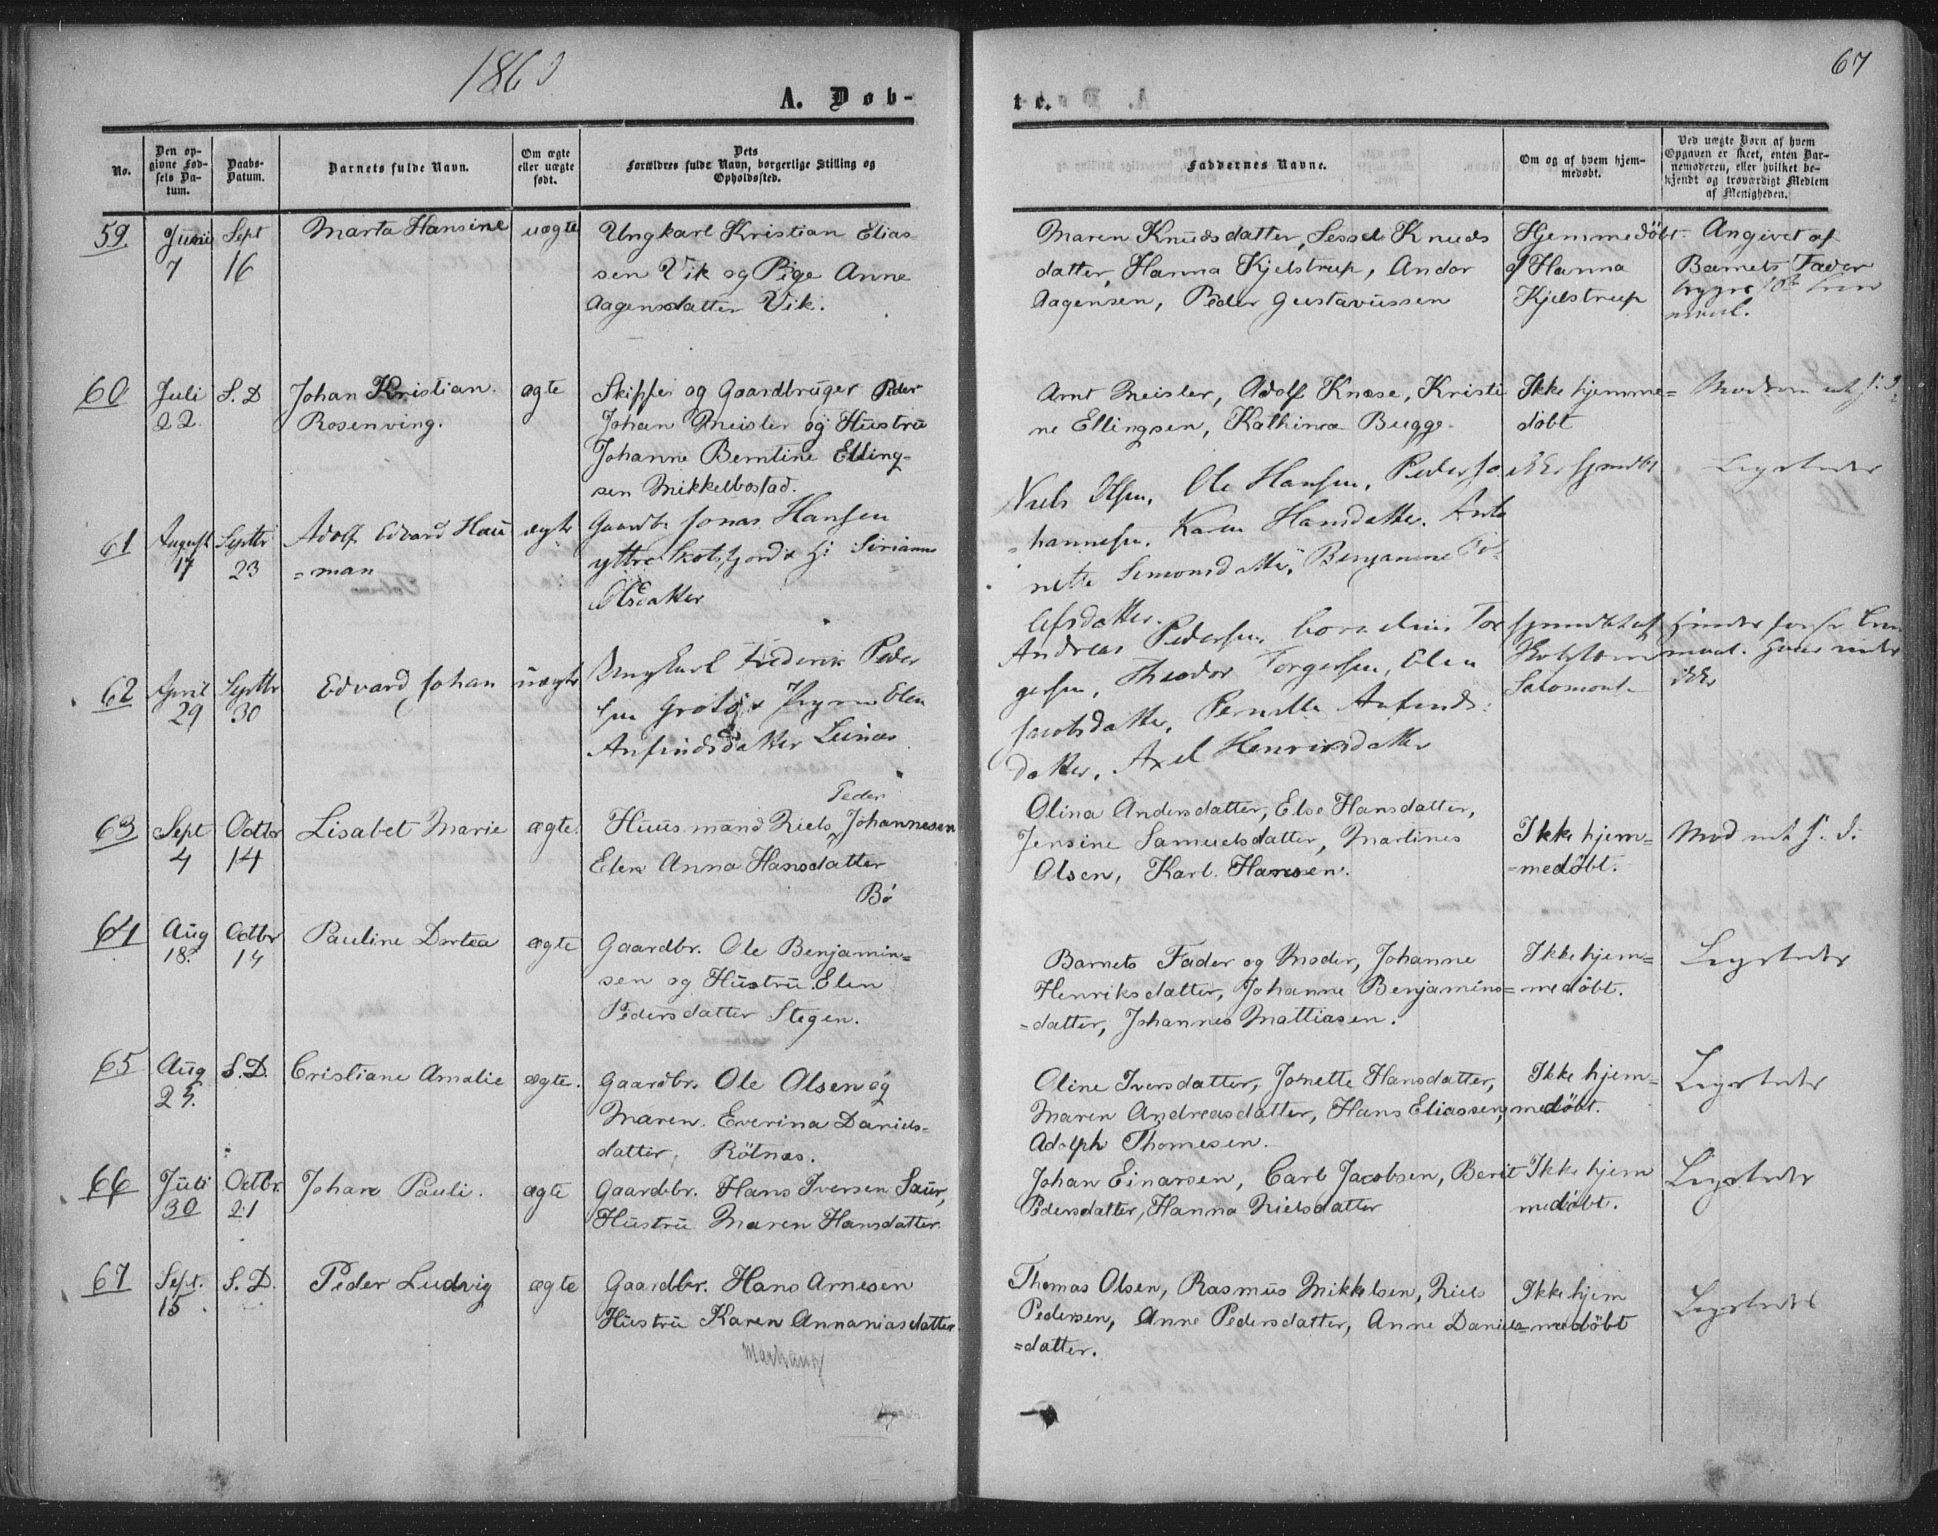 1860
67
A. Døb-
te.
No.
Den op-
givne Fød-
sels Da-
tum.
Daabs-
Datum.
Barnets fulde Navn.
Om ægte
eller uægte
født.
Dets
Forældres fulde Navn, borgerlige Stilling og
Opholdssted.
Faddernes Navne.
Om og af hvem hjem-
medøbt.
Ved uægte Børn af hvem
Opgaven er skeet, enten Bar-
nemoderen, eller hvilket be-
kjendt og troværdigt Medlem
af Menigheden.
59
Juni
7
Sept
16
Marta Hansine
uægte
Ungkarl Kristian Elias
sen Vik og Pige Anne
Aagensdatter Vik.
Maren Knudsdatter, Sessel Knuds
datter, Hanna Kjelstrup, Andor
Aagensen, Peder Gustavussen
Hjemmedöbt
af Hanna
Kjelstrup
Angivet af
Barnets Fader
60
Juli
22
S. D
Johan Kristian
Rosenving.
ægte
Skipper og Gaardbruger Peder
Johan Meisler og Hustru
Johanne Berntine Elling-
sen Mikkelbostad.
Arnt Meisler, Adolf Knøse, Kristi
ne Ellingsen, Kathinca Bugge
Ikke hjemme=
døbt
61
August
17
Septbr
23
Adolf Edvard Hau
=man
ægte
Gaardb. Jonas Hansen
yttre Skotsfjord & H:
Olsdatter
Niels Olsen, Ole Hansen, Peder Jo
hannesen, Karen Hansdatter, Anto
nette Simonsdatter, Benjamine To-
lefsdatter.
ikke hjmdbt
62
April
29
Septbr
30
Edvard Johan
uægte
Ungkarl Frederik Peder
sen Grotø & Pige Elen
Anfindsdatter Leines
Andreas Pedersen, Cornelius Tor
gersen, Theodor Torgersen, Elen
Jacobsdatter, Pernille Anfinds:
datter, Axel Henriksdatter
hjmdbt af
ikke
63
Sept
4
Octbr
14
Lisabet Marie
ægte.
Peder
Huusmand Niels Johannesen
Elen Anna Hansdatter
Bø
Olina Andersdatter, Else Hansdatter,
Jensine Samuelsdatter, Martines
Olsen, Karl Hansen.
Ikke hjem=
=medøbt.
64
Aug
18.
Octbr
14
Pauline Dortea
ægte
Gaardbr. Ole Benjamin=
sen og Hustru Elen
Pedersdatter Stegen.
Barnets Fader og Moder, Johanne
Henriksdatter, Johanne Benjamins=
=datter, Johannes Mattiasen.
Ikke hjem=
medøbt.
65
Aug
25.
S. D.
Cristiane Amalie
ægte.
Gaardbr. Ole Olsen og
Maren Everina Daniels-
datter, Rötnæs.
Oline Iversdatter, Jonette Hansdatter,
Maren Andreasdatter, Hans Eliassen,
Adolph Thomesen.
Ikke hjem=
medøbt.
66
Juli
30
Octbr.
21
Johan Pauli.
ægte
Gaardbr. Hans Iversen Saur,
Hustru Maren Hansdatter
Johan Einarsen, Carl Jacobsen, Berit
Pedersdatter, Hanna Nielsdatter
Ikke hjem
medøbt.
67
Sept.
15
S. D.
Peder Ludvig
ægte
Gaardbr. Hans Arnesen
Hustru Karen Annaniasdatter
Thomas Olsen, Rasmus Mikkelsen, Niels
Pedersen, Anne Pedersdatter, Anne Daniels=
=datter.
Ikke hjem
medöbt